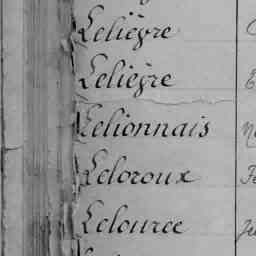 Lelièvre
Lelièvre
Lelionnais
Leloroux
Lelource